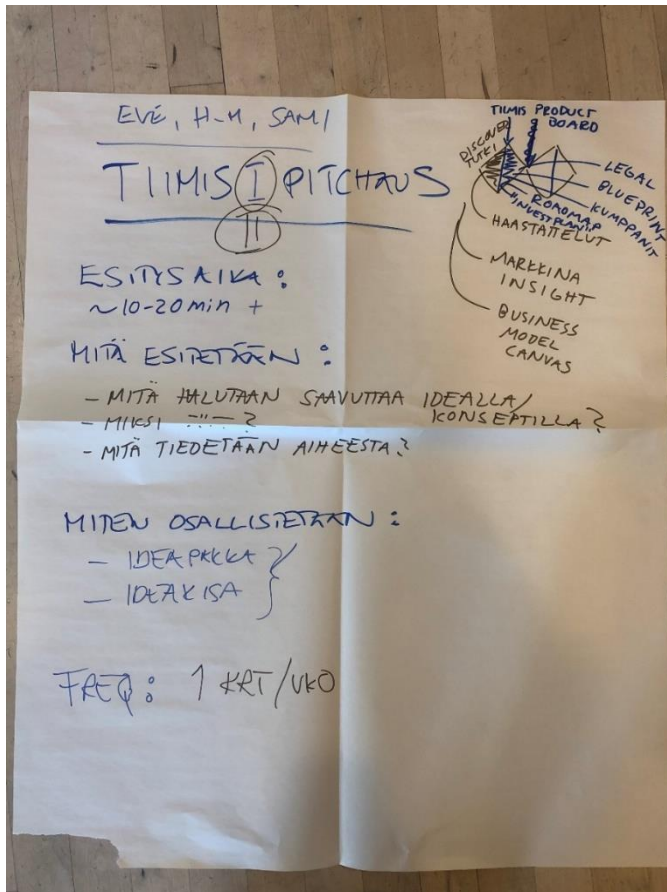 EVE, H-M, SAMI
TIIMIS I PITCHAUS
II
ESITYSAIKA:
~10-20min +
MITÄ ESITETÄÄN:
- MITÄ HALUTAAN SAAVUTTAA IDEALLA/
KONSEPTILLA?
- MIKSI -"- ?
- MITÄ TIEDETÄÄN AIHEESTA?
MITEN OSALLISTETAAN:
- IDEAPAKKA
- IDEAKISA
FREQ: 1 KRT/VKO
TIIMIS PRODUCT
BOARD
DISCOVER
TUTKI
LEGAL
BLUEPRINT
KUMPPANIT
ROADMAP
HAASTATTELUT
MARKKINA
INSIGHT
BUSINESS
MODEL
CANVAS